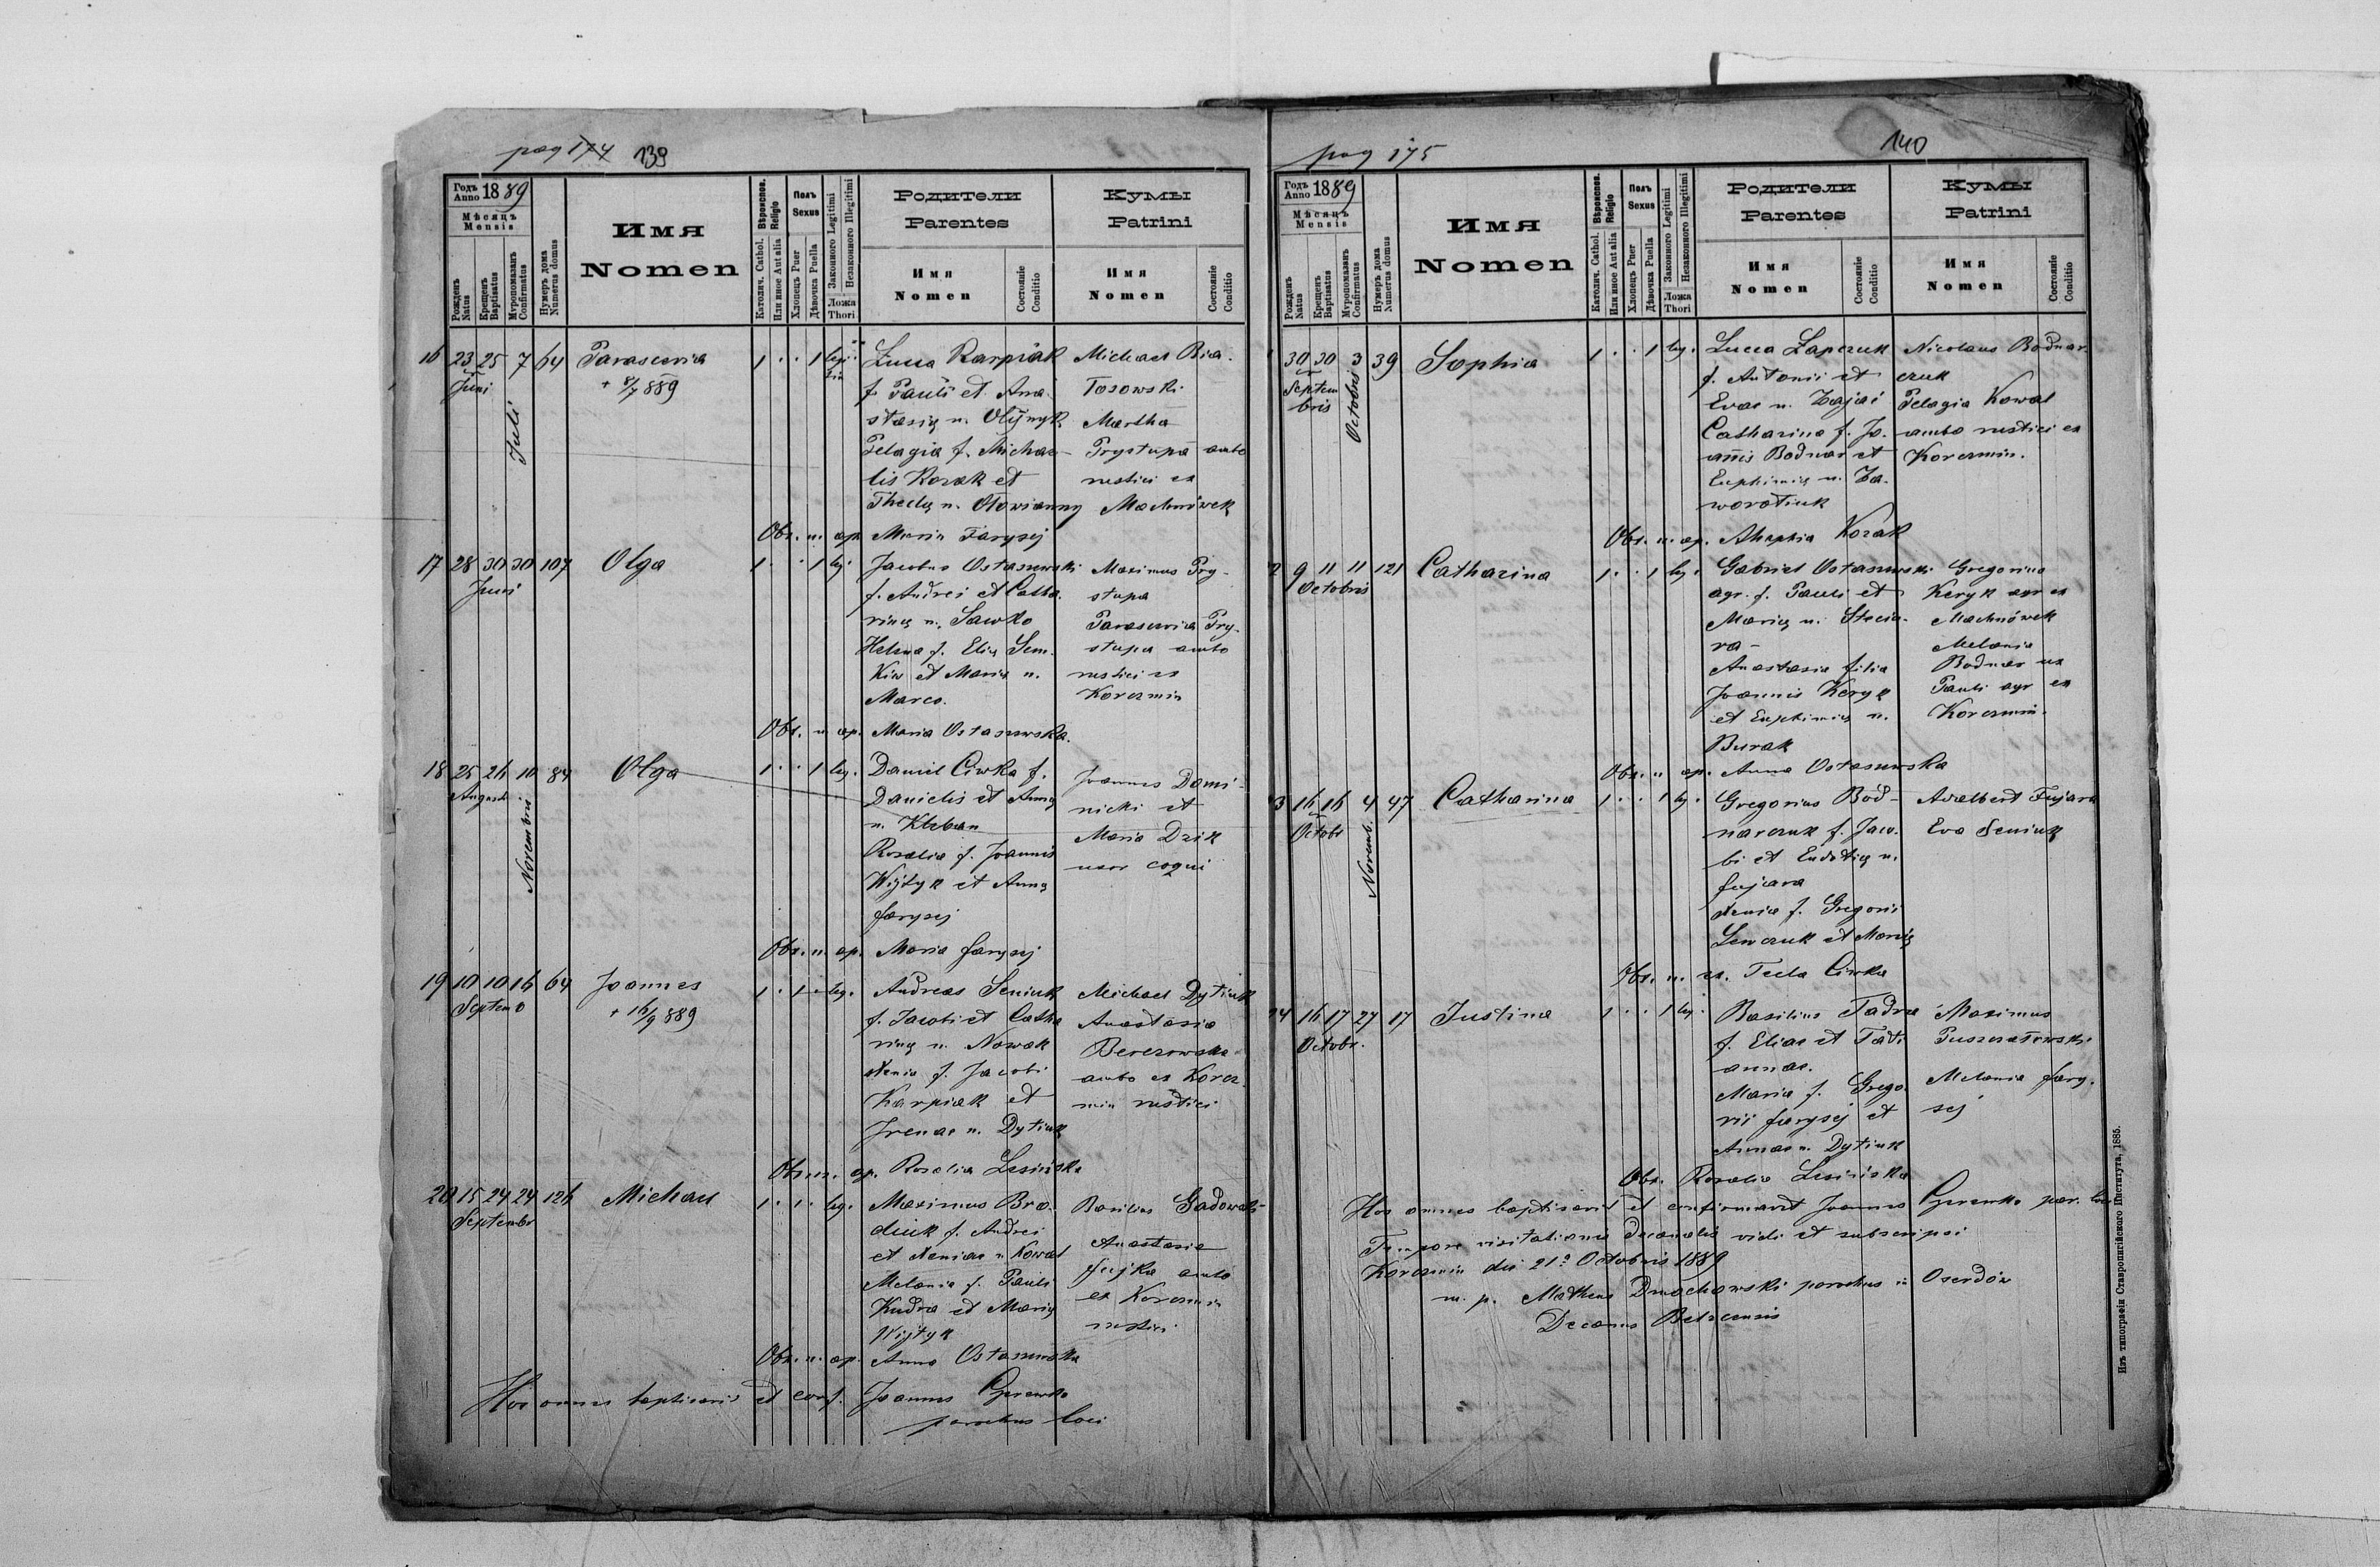 pag 174 139
Годъ Anno 1889
Мѣсяцъ Mensis
Рожденъ Natus
Крещенъ Baptisatus
Мѵропомазанъ Confirmatus
Нумеръ дома Numerus domus
Имя
Nomen
Вѣроисповѣд. Religio
Католич. Cathol.
Или иное Aut alia
Полъ Sexus
Хлопецъ Puer
Дѣвочка Puella
Законного Legitimi
Незаконного Illegitimi
Ложа Thori
Родители
Parentes
Имя Nomen
Состояніе Conditio
Кумы
Patrini
Имя Nomen
Состояніе Conditio
16 23 25 7 64 Parascevia 1 · · 1
Juni Juli
+ 8/7 889
Lucca Karpiak
f. Pauli et Ana
stasię n. Olijnyk
Pelagia f. Michae-
lis Kozak et
Theclę n.
Michael Bia-
Martha
Prystupa ambo
rustici ex
Machnówek
Obs. n. ap. Maria Farysej
17 28 30 30 107 Olga 1 · · 1 leg.
Juni
Jacobus Ostaszewski
f. Andrei et Catha-
rinę n. Sawko
Helena f. Elię Sem-
kiw et Marię n.
Marco.
Maximus Pry-
stupa
Parascevia Pry-
stupa ambo
rustici ex
Korczmin
Obs. n. ap. Maria Ostaszewska.
18 25 26 10 84 Olga 1 · · 1 leg.
Augusti Novembris
Daniel Ciwka f.
Danielis et Annę
n. Kleban
Rosalia f. Joannis
Wijtyk et Annę
Farysej
Joannes Domi-
nicki et
Maria Dzik
uxor coqui
Obs. n. ap. Maria Farysej
19 10 10 16 64 Joannes 1 · 1 · leg.
Septemb
+ 16/9 889
Andreas Seniuk
f. Jacobi et Catha
rinę n. Nowak
Xenia f. Jacobi
Karpiak et
Irenae n. Dytiuk
Michael Dytiuk
Anastasia
Berezowska
ambo ex Korcz-
min rustici
Obs. n. ap. Rosalia Lesińska
20 15 24 24 126 Michael 1 · 1 · leg.
Septembr
Maximus Bro-
diuk f. Andrei
et Xeniae n. Kowal
Melania f. Pauli
Kudra et Marię
Wijtyk
Basilius Gadowski
Anastasia
ambo
ex Korczmin
rustici
Obs. n. ap. Anna Ostaszewska
Hos omnes baptisavit et conf. Joannes
parochus loci
pag 175 140
Годъ Anno 1889
Мѣсяцъ Mensis
Рожденъ Natus
Крещенъ Baptisatus
Мѵропомазанъ Confirmatus
Нумеръ дома Numerus domus
Имя
Nomen
Вѣроисповѣд. Religio
Католич. Cathol.
Или иное Aut alia
Полъ Sexus
Хлопецъ Puer
Дѣвочка Puella
Законного Legitimi
Незаконного Illegitimi
Ложа Thori
Родители
Parentes
Имя Nomen
Состояніе Conditio
Кумы
Patrini
Имя Nomen
Состояніе Conditio
30 30 3 39 Sophia 1 · · 1 leg.
Septem
bris Octobris
Lucca Lapczuk
f. Antonii et
Evae n. Zając
Catharina f. Jo-
annis Bodnar et
Euphimię n. Za-
worotiuk
Nicolaus Bodnar-
czuk
Pelagia Kowal
ambo rustici ex
Korczmin.
Obs. n. ap. Ahaphia Kozak
2 9 11 11 121 Catharina 1 · · 1 leg.
Octobris
Gabriel Ostaszewski
agr. f. Pauli et
Marię n. Stecin-
ra-
Anastasia filia
Joannis Keryk
et Euphimię n.
Burak
Gregorius
Keryk agr ex
Machnówek
Melania
Bodnar ux
Pauli agr ex
Korczmin.
Obs. n. ap. Anna Ostaszewska
3 16 16 4 47 Catharina 1 · · 1 leg.
Octobr Novemb.
Gregorius Bod-
narczuk f. Jaco-
bi et Eudotię n.
Fujara
Xenia f. Gregorii
Lewczuk et Marię
Adalbert Fujara
Eva Seniuk
Obs. n. ex. Tecla Ciwka
4 16 17 27 17 Justina 1 · · 1 leg.
Octobr.
Basilius Fadra
f. Eliae et Tati
annae.
Maria f. Grego-
rii Farysej et
Annae n. Dytiuk
Maximus
Melania Fary-
sej
Obs. Rosalia Lesińska
Hos omnes baptisavit et confirmavit Joannes par. loci
Tempore visitationis decanalis vidi et subscripsi
Korczmin die 21 Octobris 1889
m. p. Matheus parochus in Oserdów
Decanus Belzensis
Изъ типографіи Ставропигійского Института, 1885.